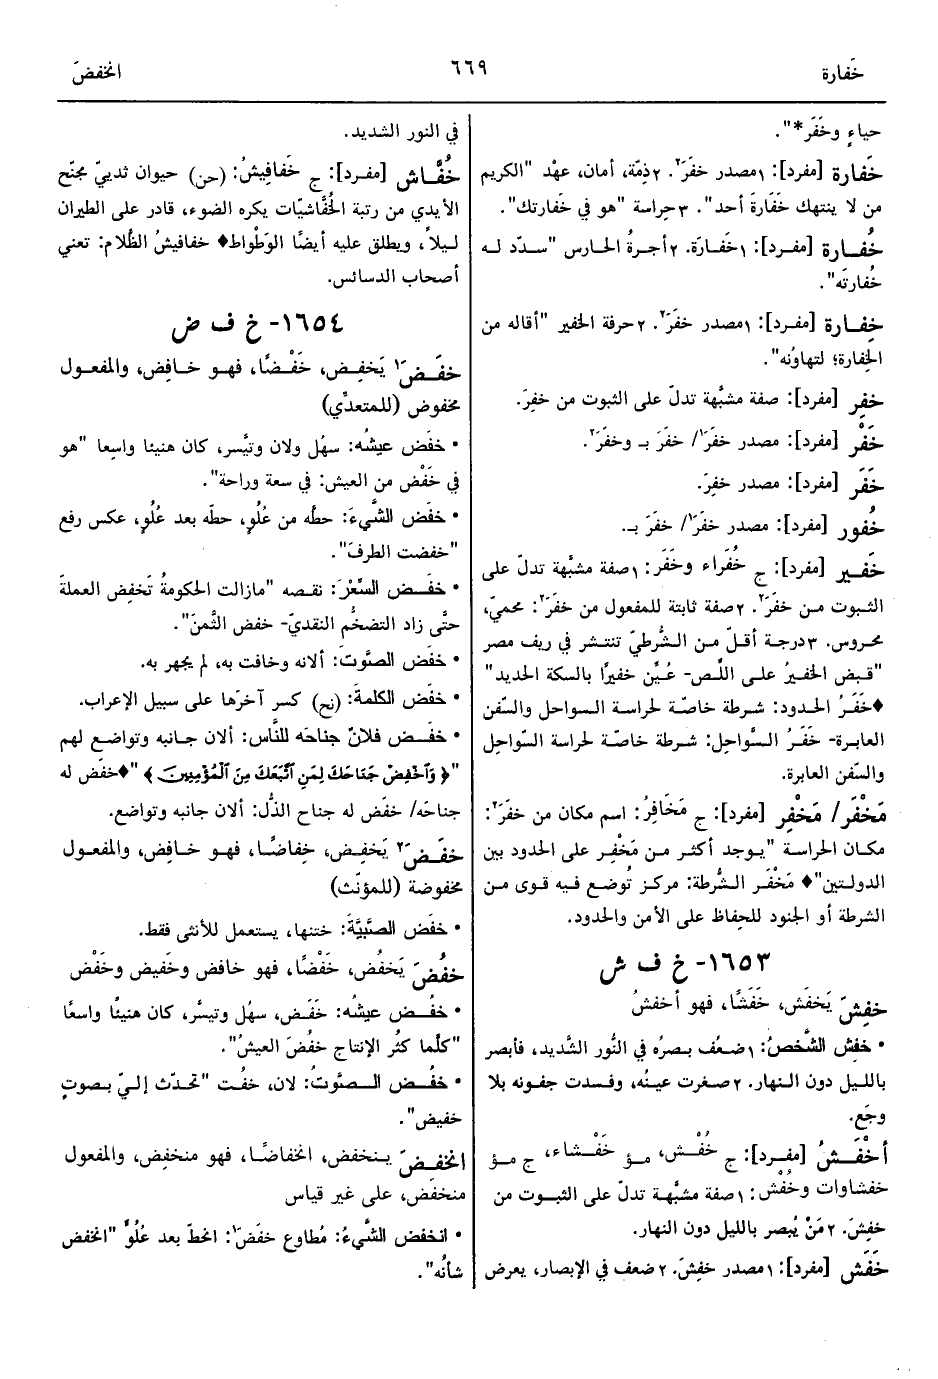 خَفارة
٦٦٩
انخفضَ
حياءٍ وخَفَر*".
خَفارة [مفرد]: ١مصدر خفَرَ٢. ٢ذِمّة، أمان، عهْد "الكريم
من لا ينتهك خَفَارَةَ أحد". ٣حِراسة "هو في خَفارتك".
خُفارة [مفرد]: ١خَفارَة. ٢أجرةُ الحارس "سدّد له
خُفارتَه".
خِفارة [مفرد]: ١مصدر خفَرَ٢. ٢حرفة الخفير "أقاله من
الخِفارة؛ لتهاوُنه".
خفِر [مفرد]: صفة مشبَّهة تدلّ على الثبوت من خفِرَ.
خَفْر [مفرد]: مصدر خفَرَ١/ خفَرَ بـ وخفَرَ٢.
خَفَر [مفرد]: مصدر خفِرَ.
خُفور [مفرد]: مصدر خفَرَ١/ خفَرَ بـ.
خَفير [مفرد]: ج خُفَراء وخَفَر: ١صفة مشبَّهة تدلّ على
الثبوت من خفَرَ٢. ٢صفة ثابتة للمفعول من خفَرَ٢: محميّ،
محروس. ٣درجة أقلّ من الشُّرطيّ تنتشر في ريف مصر
"قبض الخفيرُ على اللِّص- عُيِّن خفيرًا بالسكة الحديد"
♦خَفَرُ الحدود: شرطة خاصّة لحراسة السواحل والسُّفن
العابرة- خفَرُ السَّواحِل: شرطة خاصّة لحراسة السَّواحِل
والسُّفن العابرة.
مَخْفَر/ مَخْفِر [مفرد]: ج مَخَافِرُ: اسم مكان من خفَرَ٢:
مكان الحراسة "يوجد أكثر من مَخْفِر على الحدود بين
الدولتين"♦ مَخْفَر الشُّرطة: مركز تُوضع فيه قوى من
الشرطة أو الجنود للحِفاظ على الأمن والحدود.
١٦٥٣- خ ف ش
خفِشَ يَخفَش، خَفَشًا، فهو أخفشُ
• خفِش الشَّخصُ: ١ضعُف بصرُه في النُّور الشَّديد، فأبصر
بالليل دون النهار. ٢صغرت عينُه، وفسدت جفونه بلا
وجَع.
أخْفَشُ [مفرد]: ج خُفْش، مؤ خَفْشاء، ج مؤ
خفشاوات وخُفْش: ١صفة مشبَّهة تدلّ على الثبوت من
خفِشَ. ٢مَنْ يُبصر بالليل دون النهار.
خَفَش [مفرد]: ١مصدر خفِشَ. ٢ضعف في الإبصار، يعرض
في النور الشديد.
خُفَّاش [مفرد]: ج خَفافِيشُ: (حن) حيوان ثدييّ مجنّح
الأيدي من رتبة الخُفَّاشيّات يكره الضوء، قادر على الطيران
ليلاً، ويطلق عليه أيضًا الوَطْواط♦ خفافيشُ الظَّلام: تعني
أصحاب الدسائس.
١٦٥٤- خ ف ض
خفَضَ١ يَخفِض، خَفْضًا، فهو خافِض، والمفعول
مخفوض (للمتعدِّي)
• خفَض عيشُه: سهُل ولان وتيسَّر، كان هنيئا واسِعا "هو
في خَفْض من العيش: في سعة وراحة".
• خفَض الشَّيءَ: حطّه من عُلُوٍ، حطّه بعد عُلُوٍ، عكس رفع
"خفضت الطرفَ".
• خفَض السِّعْرَ: نقصه "مازالت الحكومةُ تَخفض العملةَ
حتَّى زاد التضخُّم النقديّ- خفض الثَّمنَ".
• خفَض الصَّوتَ: ألانه وخافت به، لم يجهر به.
• خفَض الكلمةَ: (نح) كسر آخرَها على سبيل الإعراب.
• خفَض فلانٌ جناحَه للنَّاس: ألان جانبه وتواضع لهم
"﴿وَاخْفِضْ جَنَاحَكَ لِمَنِ اتَّبَعَكَ مِنَ الْمُؤْمِنِينَ﴾ "♦خفَض له
جناحَه/ خفَض له جناح الذُّل: ألان جانبه وتواضع.
خفَضَ٢ يَخفِض، خِفاضًا، فهو خافِض، والمفعول
مخفوضة (للمؤنّث)
• خفَض الصَّبِيَّةَ: ختنها، يستعمل للأنثى فقط.
خفُضَ يَخفُض، خَفْضًا، فهو خافض وخَفيض وخَفْض
• خفُض عيشُه: خَفَض، سهُل وتيسَّر، كان هنيئًا واسعًا
"كلَّما كثُر الإنتاج خفُضَ العيشُ".
• خفُض الصَّوتُ: لان، خفُت "تحدّث إليّ بصوتٍ
خفيض".
انخفضَ ينخفض، انخفاضًا، فهو منخفِض، والمفعول
منخفِض، على غير قياس
• انخفض الشَّيءُ: مُطاوع خفَضَ١: انحطّ بعد عُلُوٍّ "انخفض
شأنُه".